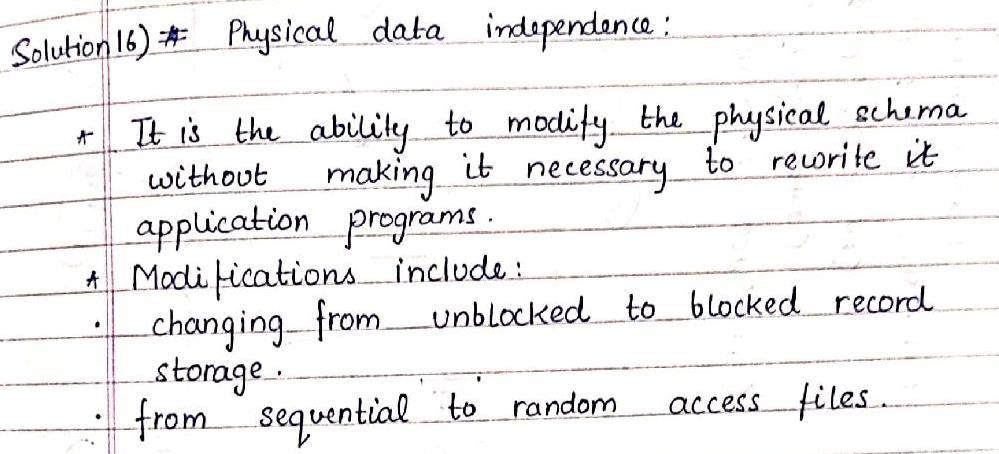 Solution 16) * Physical data independence :
* It is the ability to modify the physical schema
without making it necessary to rewrite it
application programs.
* Modifications include :
· changing from unblocked to blocked record
storage.
· from sequential to random access files.